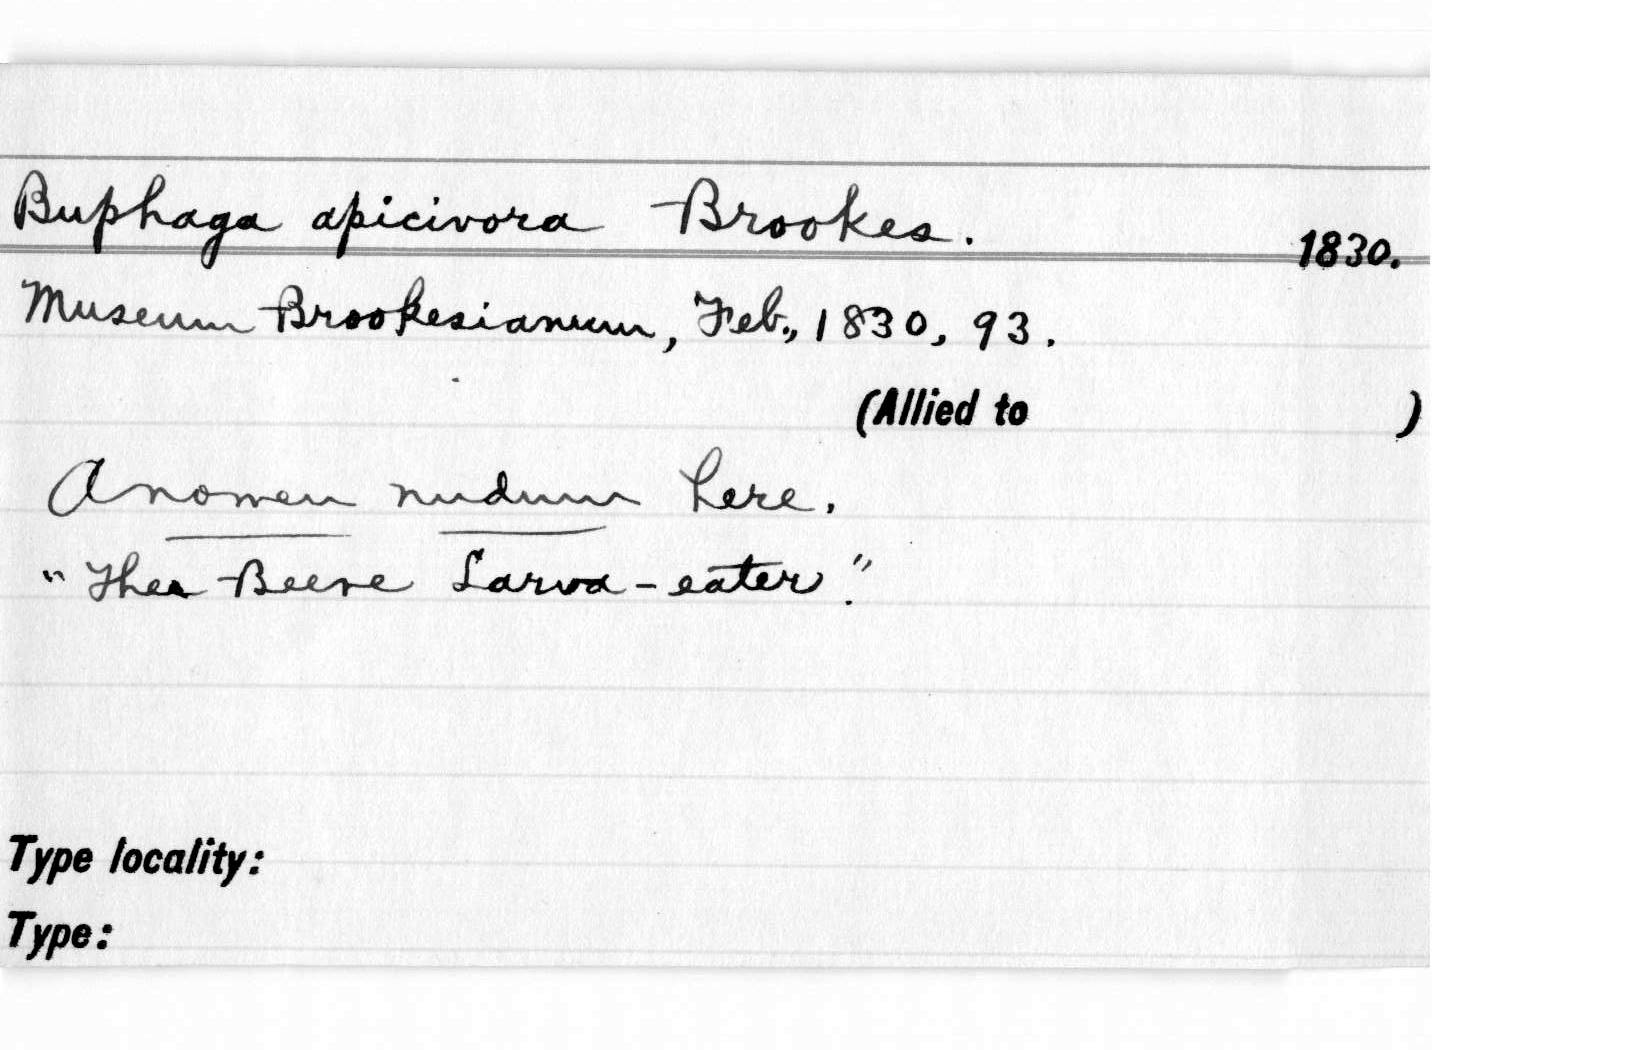 Buphaga apicivora Brookes. 1830.
Museum Brookesianum, Feb., 1830, 93.
(Allied to )
A nomen nudum here.
"The Beeve Larva-eater."
Type locality:
Type: